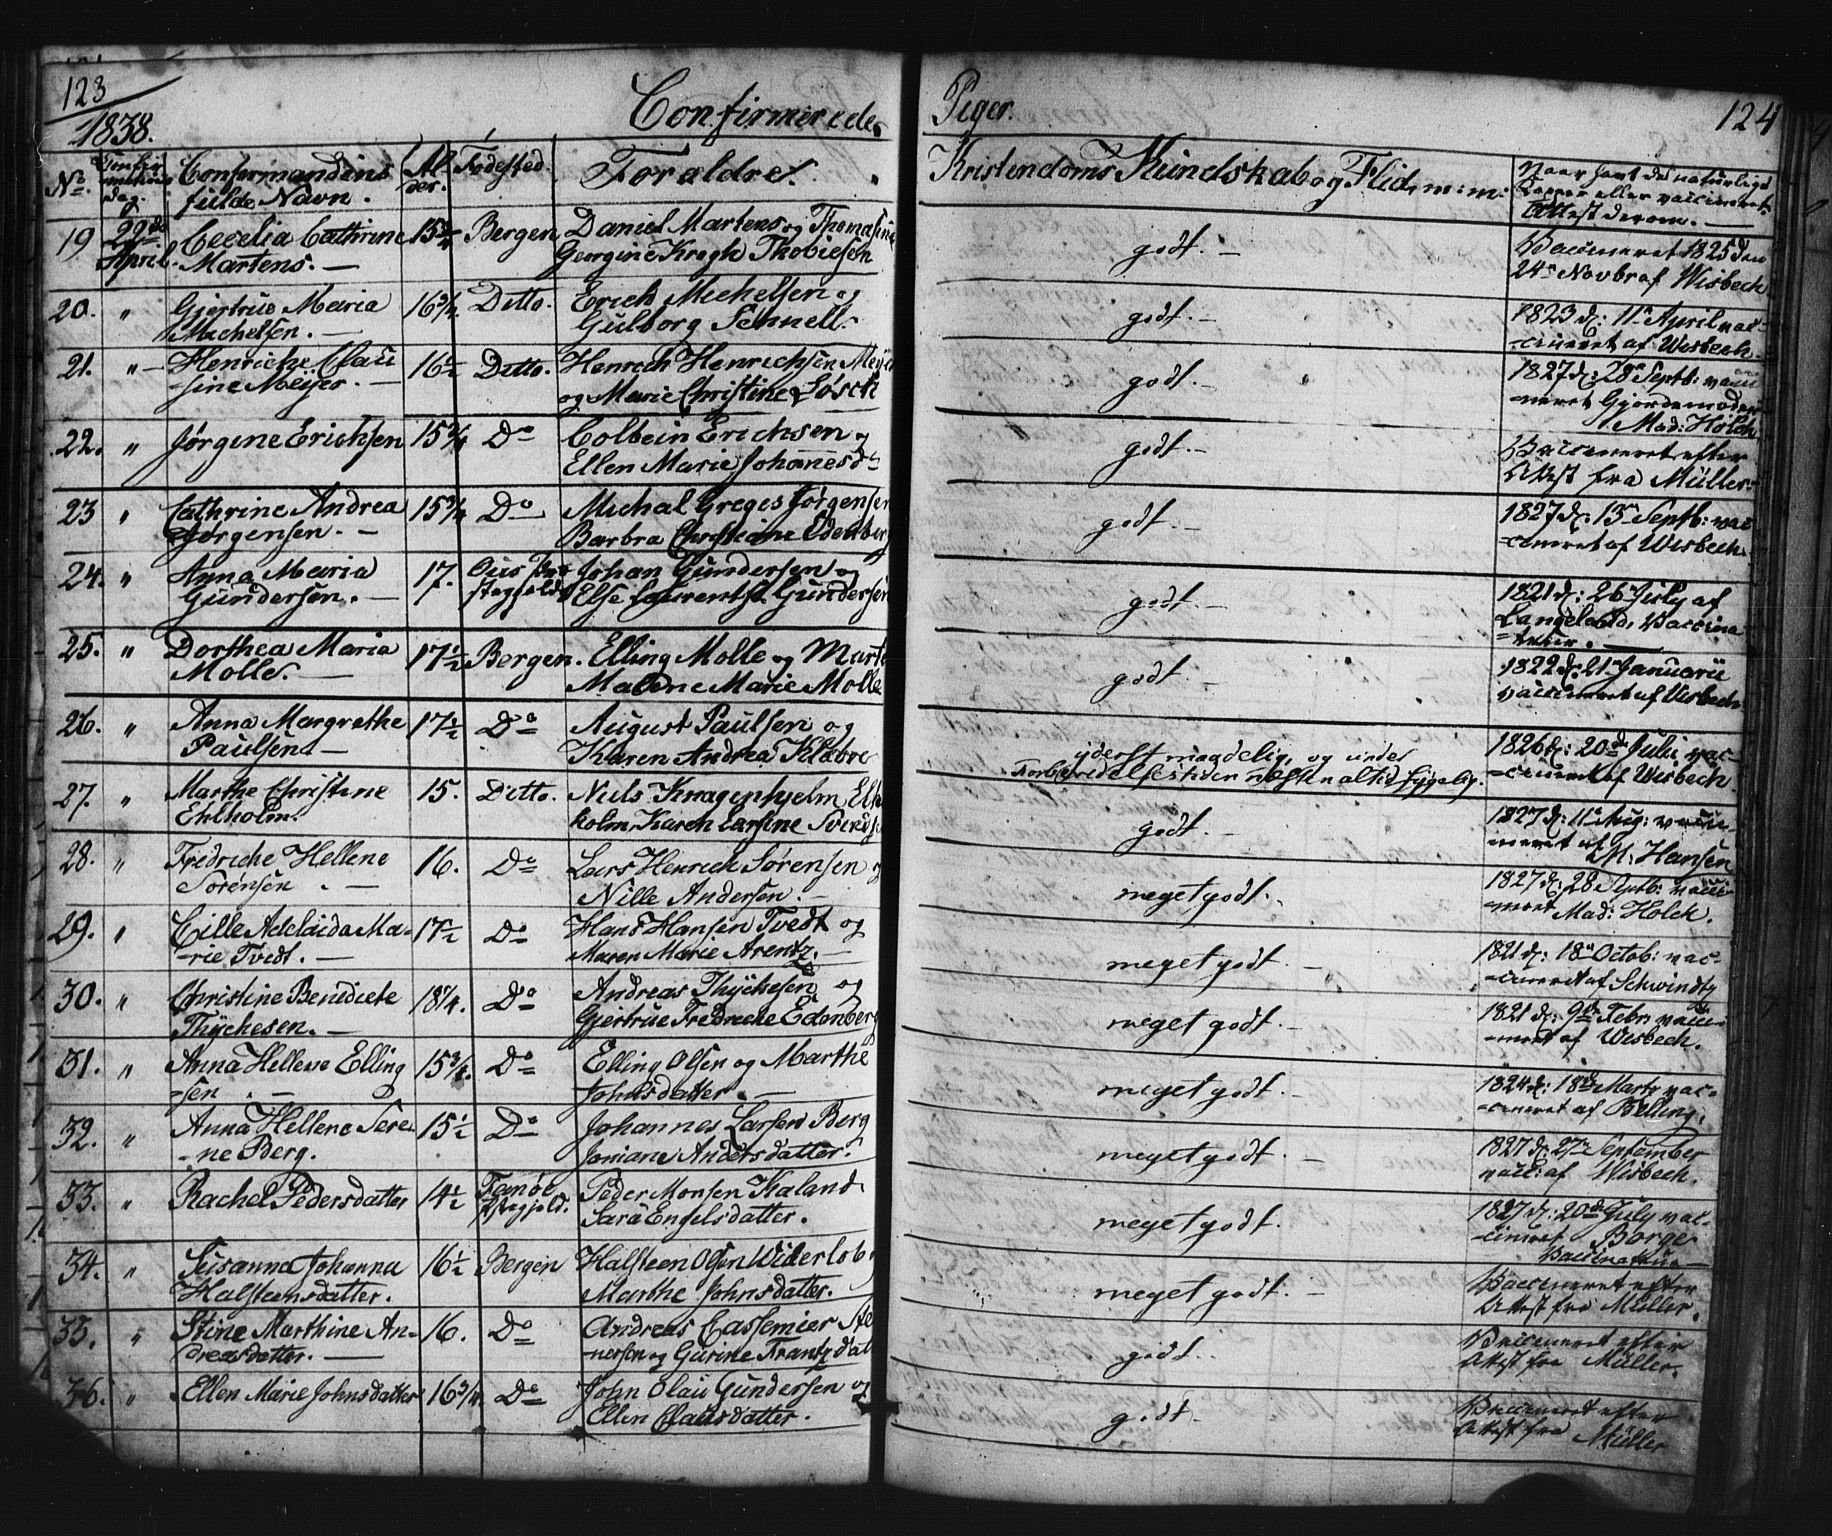 123
1838.
Confirmerede
Piger.
124
No.
Confir-
mations
dag.
Confirmandens
fulde Navn.
Al-
der.
Fødested.
Forældre.
Kristendoms Kundskab og Flid, m: m:
Naar havt de naturlige
Kopper eller vaccineret.
Attest derom.
19 29de April. Cecelia Cathrine
Martens.
15 Bergen
Daniel Martens og Thomasine
Georgine Krogh Thobiesen
godt.
Vaccineret 1825 den
24de Novbr af Wisbech
20. " Gjertrue Maria
Michelsen.
16 3/4 Ditto.
Erich Michelsen og
Gulborg Sennell.
godt.
1823 d: 11te April vac-
-cineret af Wisbech.
21. " Henriche Clau
-sine Meyer.
16 1/2 Ditto.
Henrich Henrichsen Meyer
og Marie Christine Løsch
godt.
1827 d: 28de Septb: vacci
-neret Gjordemoder
Mad: Holck
22. " Jørgine Erichsen
15 3/4 Do
Colbein Erichsen og
Ellen Marie Johanesd
godt.
Vaccineret efter
Attest fra Müller.
23 " Cathrine Andrea
Jørgensen.
15 3/4 Do
Michal Greges Jørgensen
Barbra Christiane Edenberg
godt.
1827 d: 13de Septb: vac
-cineret af Wisbech.
24. " Anna Maria
Gundersen.
17.
Johan Gundersen og
Else Laurentse Gundersen
godt.
1821 d: 26de July af
Langeland, Vaccina
-teur.
25. " Dorthea Maria
Molle.
17 1/2 Bergen.
Elling Molle og Marte
Malene Marie Molle
godt.
1822 d: 21de Januarii
vaccineret af Wisbech
26. " Anna Margrethe
Paulsen
17 1/2 Do
August Paulsen og
Karen Andrea Klæbve
yderst maadelig, og under
Forberedelsestiden næsten altid sygelig.
1826 d: 20de Julii vac-
-cineret af Wisbech
27. " Marthe Christine
Ehlholm.
15. Ditto.
Niels Kragenhjelm Elh
holm, Karen Larsine Sverds
godt.
1827 d: 11te Aug: vacci
neret af
M: Hansen
28. " Fredriche Hellene
Sørensen.
16. Do
Lars Henrich Sørensen og
Nille Andersen.
meget godt.
1827 d: 28 Septb: vacci
-neret Mad: Holck.
29. " Cille Adelaida Ma-
-rie Tvedt.
17 1/2 Do
Hans Hansen Tvedt og
Maren Marie Arentz.
meget godt
1821 d: 18de Octob: vac-
-cineret af Schwindt
30. " Christine Benedicte
Thychesen.
18 1/4. Do
Andreas Thychesen og
Gjertrue Fredreche Edenberg
meget godt.
1821 d: 9de Febr: vacci-
-neret af Wisbech.
31. " Anna Hellene Elling
-sen
15 3/4. Do
Elling Olsen og Marthe
Johnsdatter.
meget godt.
1824 d: 18de Marty vac-
-cineret af Belling.
32. " Anna Hellene Sere-
-ne Berg.
15 1/2 Do
Johannes Larsen Berg
Joniane Andersdatter.
meget godt.
1827 d: 27de September
vacc: af Wisbech.
33. " Rachel Pedersdatter
14 1/2 Fanöe
Pstegjeld.
Peder Monsen Kaland
Sara Engelsdatter.
meget godt.
1827 d: 20de July vac-
cineret Borge
Vaccinateur
34. " Susanna Johanna
Halsteensdatter.
16 1/2 Bergen
Halsteen Olsen Widerlob
Marthe Johnsdatter.
meget godt.
Vaccineret efter
Attest fra Müller.
35. " Stine Marthine An-
dreasdatter.
16. Do
Andreas Cassemier Ae
-nersen og Gurine Frantzdat
godt.
Vaccineret efter
Attest fra Müller.
36. " Ellen Marie Johnsdatter
16 3/4 Do
John Olau Gundersen og
Ellen Clausdatter.
godt.
Vaccineret efter
Attest fra
Müller